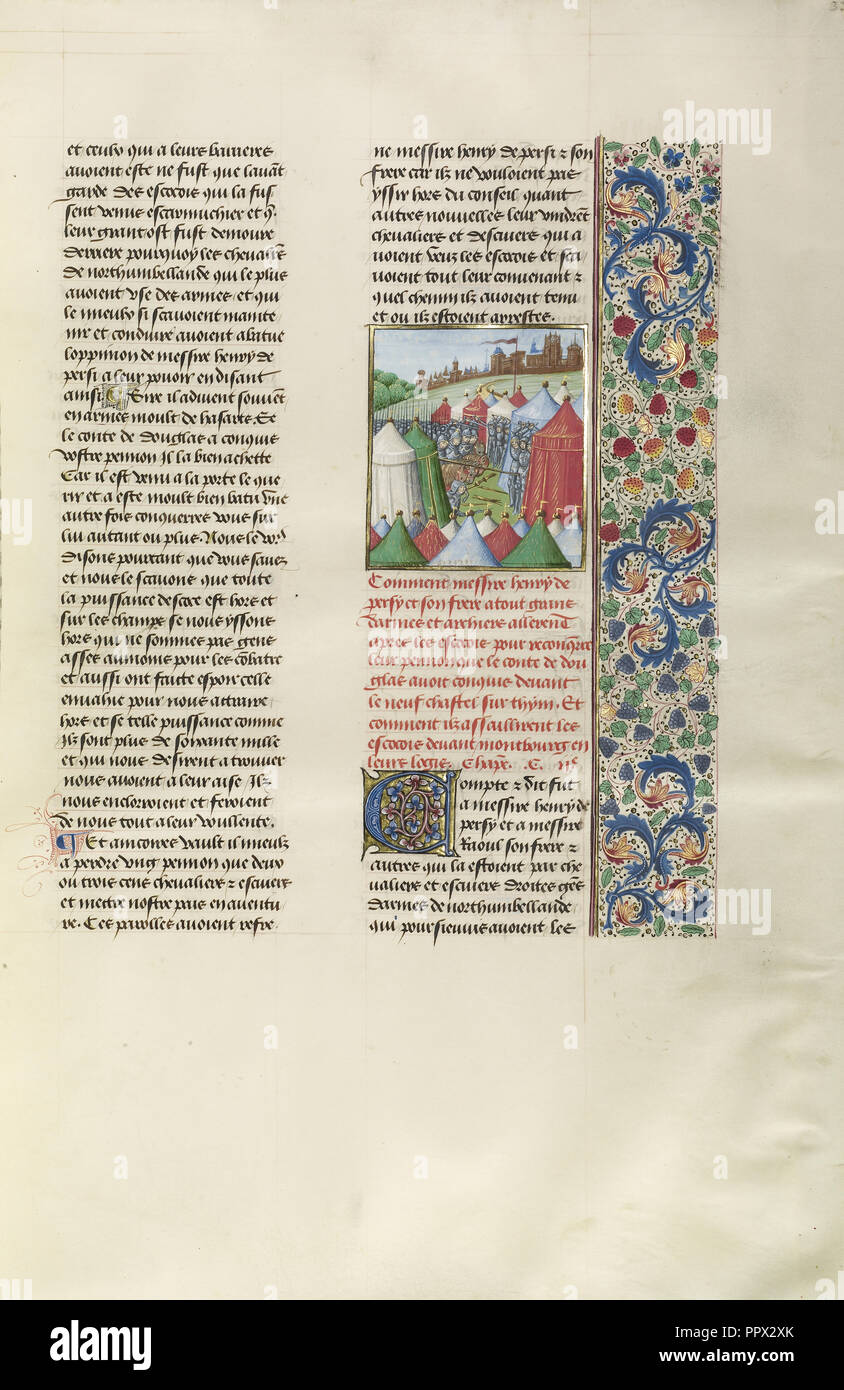 et ceulx qui a leurs barrieres
avoient este ne fust que lavāt
garde des escocois qui la fus
sent venus escarmuchier et q̄
leur grant ost fust demoure
derriere pourquoy les chevalīrs
de northumbellande qui le plus
avoient use des armes et qui
le mieulx si scavoient mainte
nir et conduire avoient abatue
loppinion de messire henry de
persi a leur povoir en disant
ainsi Sire il advient souvent
en armes moult de hasars Se
le conte de douglas a conquis
vostre pennon Il la bien achette
Car il est venu a la porte le que
rir et a este moult bien batu vne
autre fois conquerres vous sur
lui autant ou plus. Nous le vo9
disons pourtant que vous savez
et nous le scavons que toute
la puissance descoce est hors et
sur les champs se nous yssons
hors qui ne sommes pas gens
asses au moins pour les cōbatre
et aussi ont faitte espoir celle
envahie pour nous attraire
hors et se telle puissance comme
Ilz sont plus de soixante mille
et qui nous desirent a trouver
nous avoient a leur aise Ilz
nous encloroient et feroient
de nous tout a leur voullente.
Et aincores vault il mieulz
a perdre vng pennon que deux
ou trois cens chevaliers & escuiers
et mettre nostre pais en aventu
re. Ces parolles avoient refre
ne messire henry de persi & son
frere car ilz ne vouloient pas
yssir hors du conseil quant
autres nouvelles leur vindrēt
chevaliers et descuiers qui a
voient veuz les escocois et sca
voient tout leur convenant &
quel chemin ilz avoient tenu
et ou ilz estoient arrestes.
Comment messire henry de
persy et son frere a tout grans
darmes et archiers allerent
apres les escocois pour reconq̄rre
leur pennon que le conte de dou
glas avoit conquis devant
le neuf chastel sur thym. Et
comment ilz assaillirent les
escocois devant montbourg en
leurs logis. Chapr̄e. C.
Compte & dit fut
a messire henry de
persy et a messire
Raoul son frere &
autres qui la estoient par che
valiers et escuiers droites gēs
darmes de northumbellande
qui poursieuvis avoient les
alamy
alamy
PPX2XK
www.alamy.com